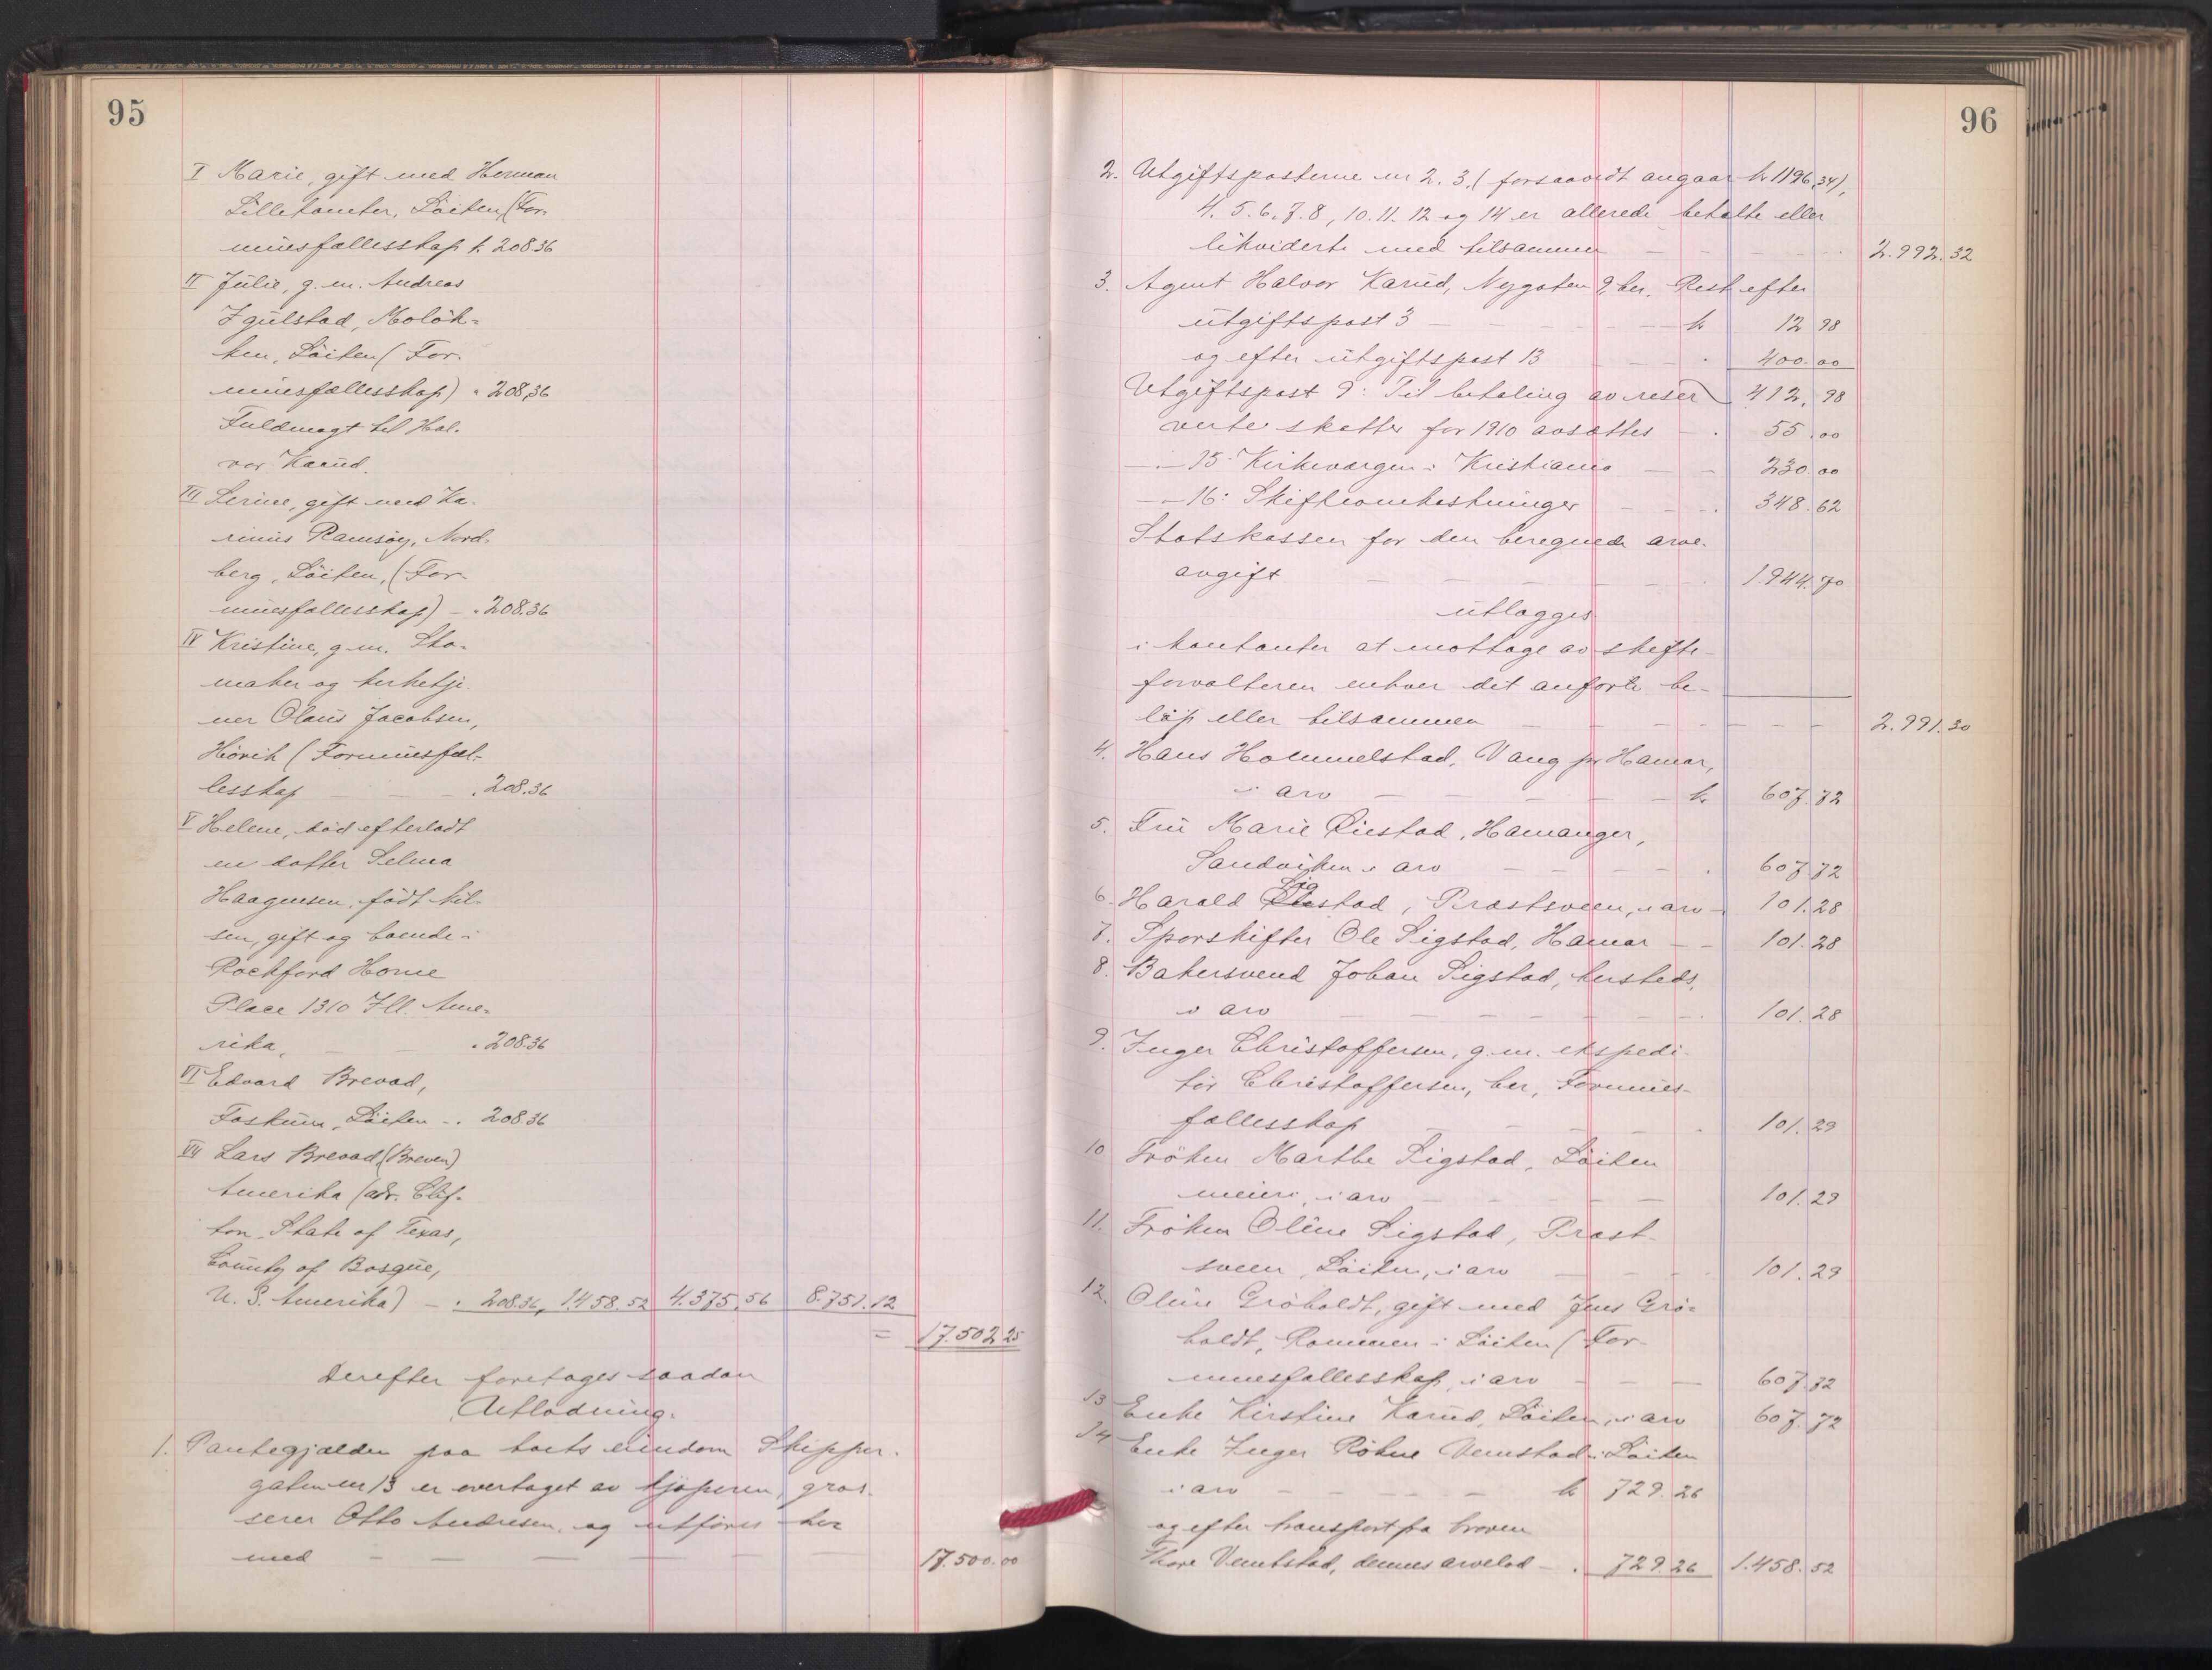 95
I Marie, gift med Herman
Lilletomter, Löiten, (For-
muesfællesskap k. 208 36
II Julie, g. m. Andreas
Igulstad, Molök-
ken, Löiten (For-
muesfællesskap) " 208,36
Fuldmagt til Hal-
vor Karud.
III Serine, gift med Ka-
rinius Ramsöy, Nord-
berg, Löiten, (For-
muesfællesskap) - " 208.36
IV Kristine, g. m. Sko-
maker og kirketje-
ner Olaus Jacobsen,
Hörvik (Formuesfæl-
lesskap - - - . 208.36
V Helene, död efterladt
en datter Selma
Haagensen, födt Nil-
sen, gift og boende i
Rockford Horne
Place 1310 Ill. Ame-
rika, - - " 208.36
VI Edvard Brevad,
Foskum, Löiten - . 208.36
VII Lars Brevad (Breven)
Amerika (adr. Clif-
ton, State of Texas,
County of Bosque,
U. S. Amerika) - . 208.36, 1.458.52 4.375,56 8.751.12
= 17.502 25
Derefter foretages saadan
Utlodning.
1. Pantegjælden paa boets eiendom Skipper-
gaten nr 13 er overtaget av kjöperen, gros-
serer Otto Andresen, og utföres her
med - - - - - - 17.500.00
96
2. Utgiftsposterne nr 2. 3. (forsaavidt angaar kr 1196,34),
4. 5. 6. 7. 8, 10. 11. 12 og 14 er allerede betalte eller
likviderte med tilsammen - - - - - 2.992.32
3. Agent Halvor Karud, Nygaten 9, her, Rest efter
utgiftspost 3 - - - - - kr 12 98
og efter utgiftspost 13 - - . 400.00
Utgiftspost 9: Til betaling av reser 412. 98
verte skatter for 1910 avsættes - . 55.00
- " - 15: Kirkevergen i Kristiania - - 230.00
- " - 16: Skifteomkostninger - - . 348.62
Statskassen for den beregnede arve-
avgift - - - - - . 1.944.70
utlægges
i kontanter at mottage av skifte-
forvalteren enhver det anförte be-
löp eller tilsammen - - - - - - - 2.991.30
4. Hans Hommelstad, Vang pr Hamar,
i arv - - - - - kr 607.72
5. Fru Marie Riestad, Hamanger,
Sandviken i arv - - - - . 607.72
6. Harald Sigstad, Præstsveen, i arv - 101.28
7. Sporskifter Ole Sigstad, Hamar - - 101.28
8. Bakersvend Johan Sigstad, hersteds,
i arv - - - - - - . 101.28
9. Inger Christoffersen, g. m. ekspedi-
tör Christoffersen, her, Formues-
fællesskap - - - - - . 101.29
10 Fröken Marthe Sigstad, Löiten
meieri, i arv - - - - - 101.29
11. Fröken Oline Sigstad, Præst-
sveen, Löiten, i arv - - - 101.29
12. Oline Gröholdt, gift med Jens Grö-
holdt, Rommen i Löiten (For-
muesfællesskap, i arv - - - 607.72
13 Enke Kirstine Karud, Löiten, i arv 607.72
14 Enke Inger Röhne Vemstad i Löiten
i arv - - - - - kr 729.26
og efter transport fra broren
Thore Vemtstad, dennes arvelod - . 729.26 1.458.52